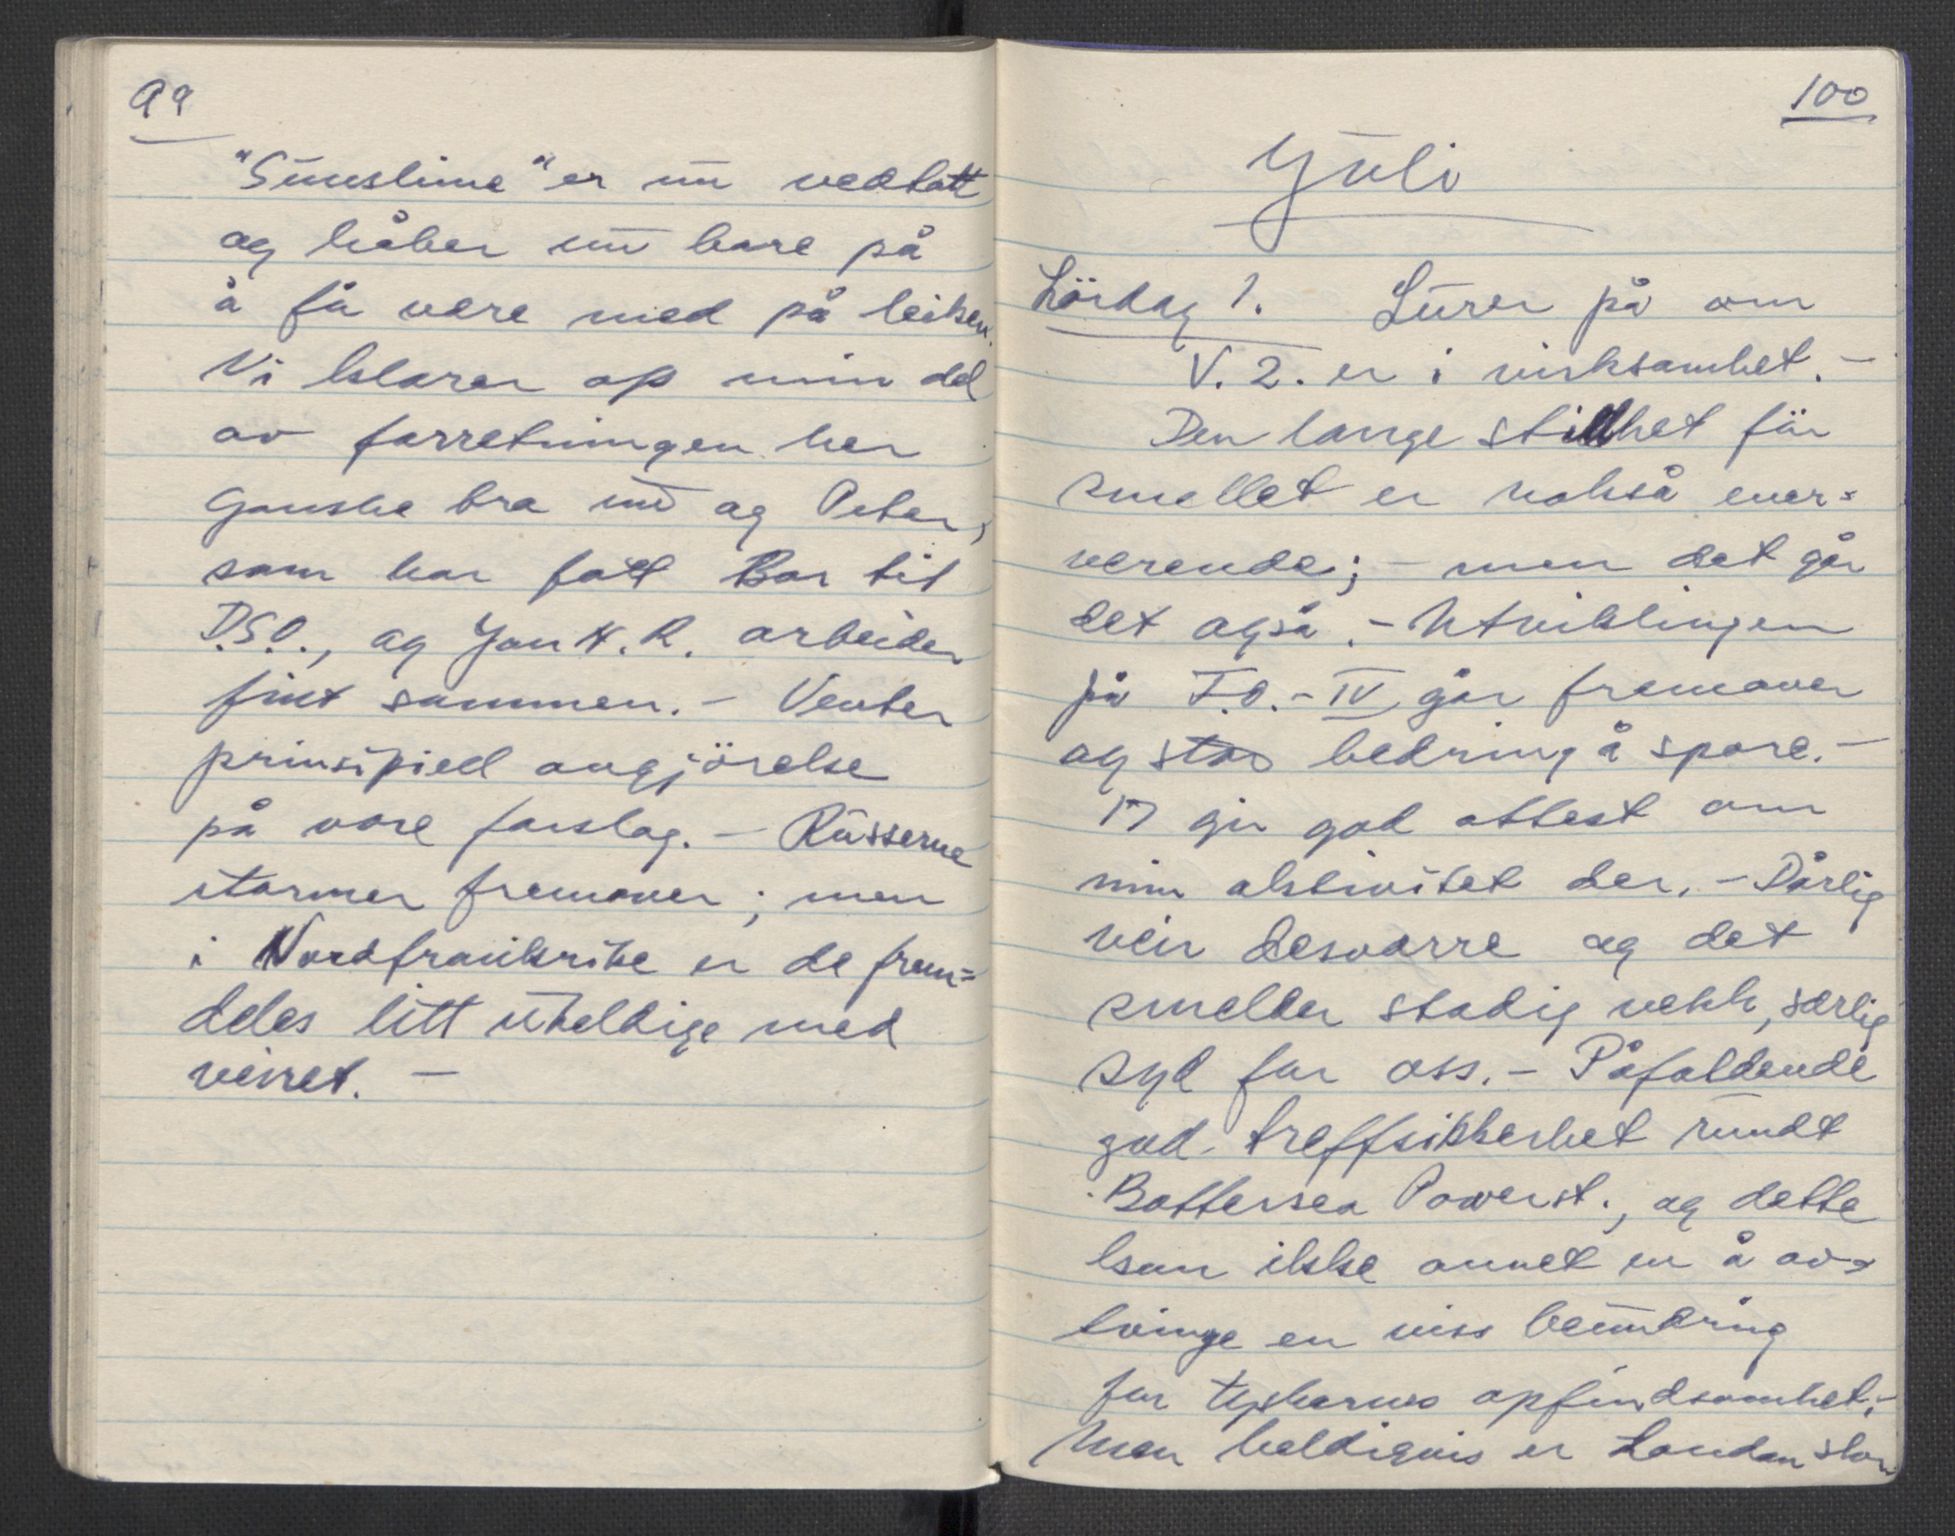 99
"Sunshine" er nu vedtatt
og håber nu bare på
å få være med på leiken.
Vi klarer op min del
av forretningen her
ganske bra nu og Peter,
som har fått Bar til
D.S.O., og Jan H. R. arbeider
fint sammen. – Venter
prinsipiell avgjörelse
på våre forslag. – Russerne
stormer fremover; men
i Nordfrankrike er de frem=
deles litt uheldige med
veiret. –
100
Juli
Lördag 1. Lurer på om
V. 2. er i virksamhet. –
Den lange stillhet för
smellet er nokså ener=
verende; – men det går
det også. – Utviklingen
på F.O. – IV går fremover
og stor bedring å spore. –
17 gir god attest om
min aktivitet der. – Dårlig
veir desværre og det
smelder stadig vekk, særlig
syd for oss. – Påfaldende
god treffsikkerhet rundt
Battersea Powerst., og dette
kan ikke annet en å av=
tvinge en viss beundring
for tyskernes opfindsomhet. –
Men heldigvis er London stor